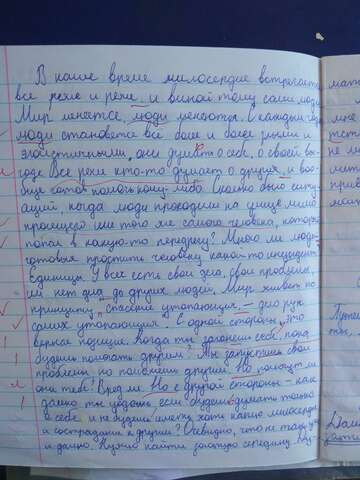 В наше время милосердие встречается
все реже и реже, и виной тому сами люди.
Мир меняется, люди меняются. С каждым годом
люди становятся все более и более злыми и
эгоистичными, они думать о себе, о своей вы-
годе. Все реже кто-то думает о других, и вооб-
ще готов помогать кому-либо. Сколько было ситу-
аций, когда люди проходили на улице мимо
просящего или того же самого человека, который
попал в какую-то передрягу? Много ли людей
готовых простить человеку какой-то инцидент?
Единицы. У всех есть свои эго, свои проблемы,
им нет дела до других людей. Мир живет по
принципу „спасение утопающих – дело рук
самих утопающих". С одной стороны, это
верная позиция. Когда ты загонешь себя, пока
будешь помогать другим? Ты запустишь свои
проблемы, но поможешь другим. Но помогут ли
они тебе? Вряд ли. Но с другой стороны – как
далеко ты уйдешь, если будешь думать только
о себе, и не будешь иметь хоть каплю милосердия
и сострадания к другим? Очевидно, что не
и далеко. Нужно найти золотую середину,
мате
мне
тем
не м
прив
мысл
Путе